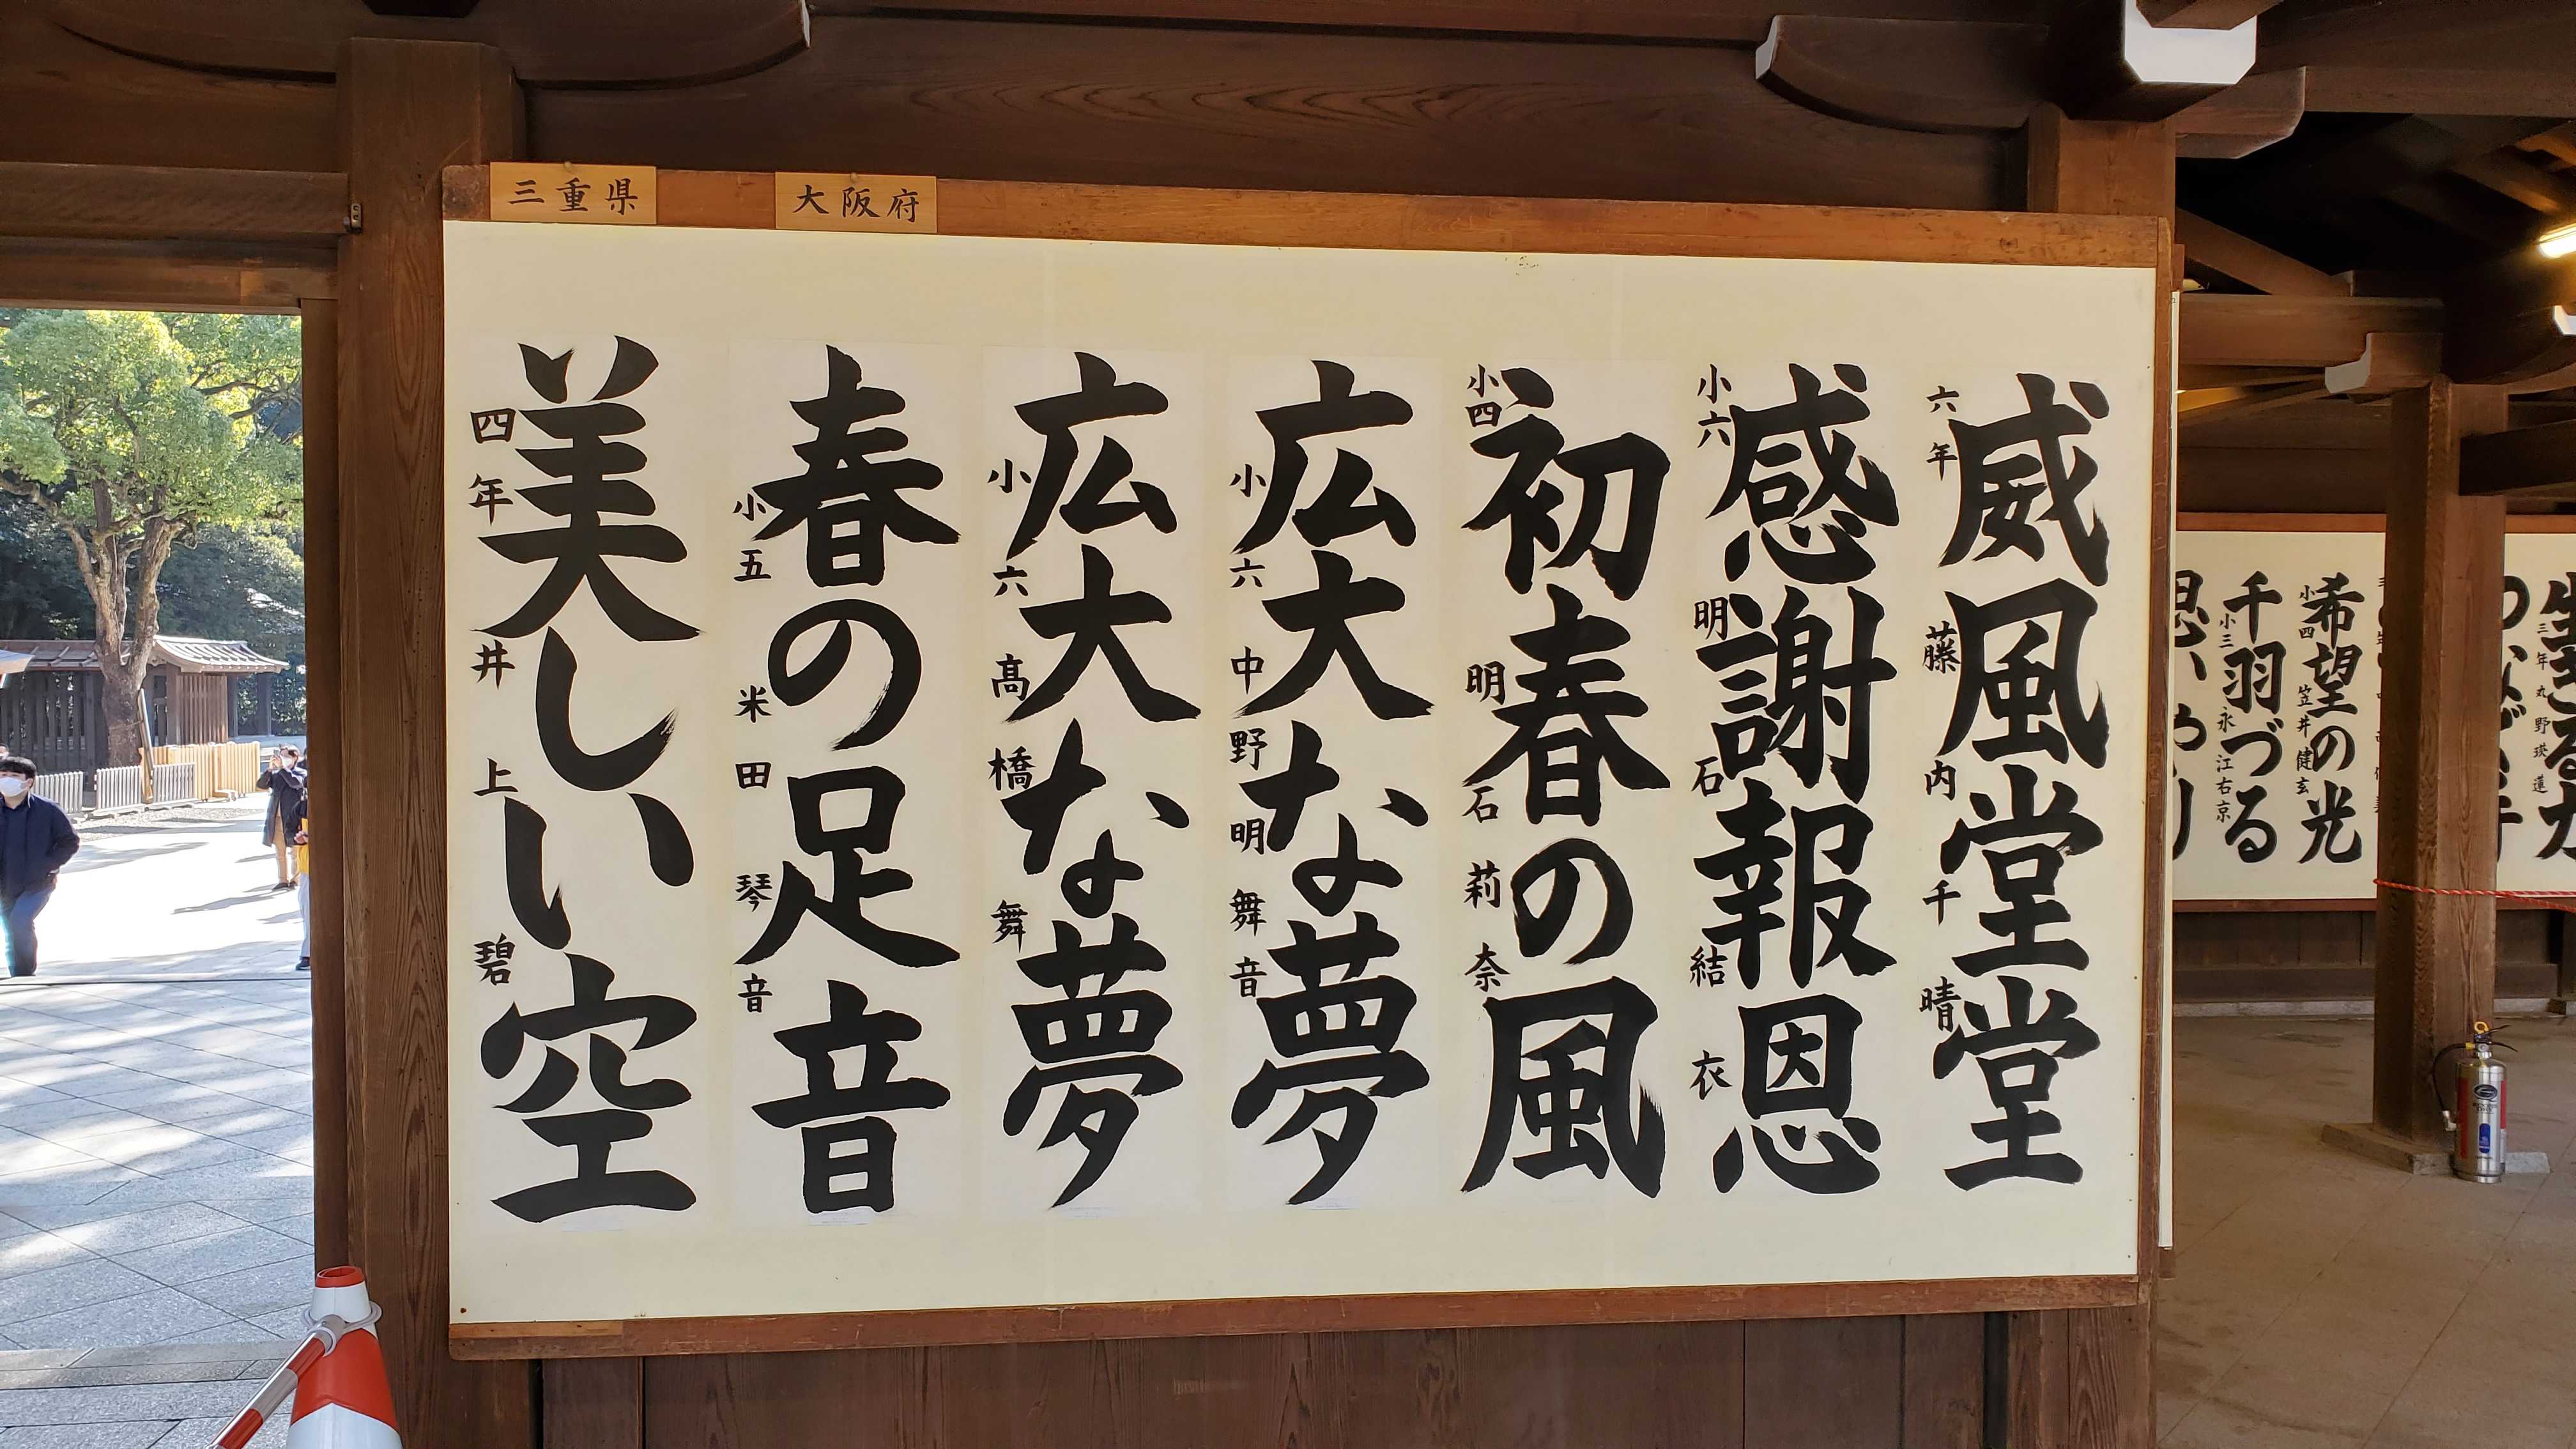 三重県
大阪府
威風堂堂
六年 藤内千晴
感謝報恩
小六 明石結衣
初春の風
小四 明石莉奈
広大な夢
小六 中野明舞音
広大な夢
小六 髙橋舞
春の足音
小五 米田琴音
美しい空
四年 井上碧
希望の光
小四 笠井健玄
千羽づる
小三 永江右京